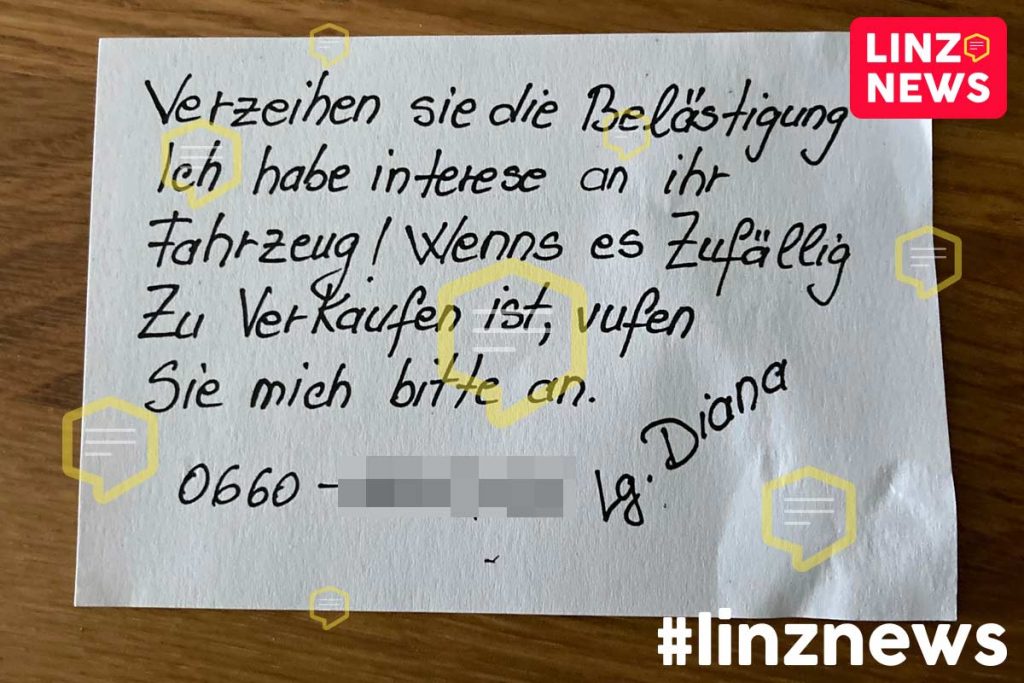 LINZ
NEWS
Verzeihen sie die Belästigung
Ich habe interese an ihr
Fahrzeug! Wenns es Zufällig
Zu Verkaufen ist, rufen
Sie mich bitte an.
0660 -
Lg. Diana
#linznews